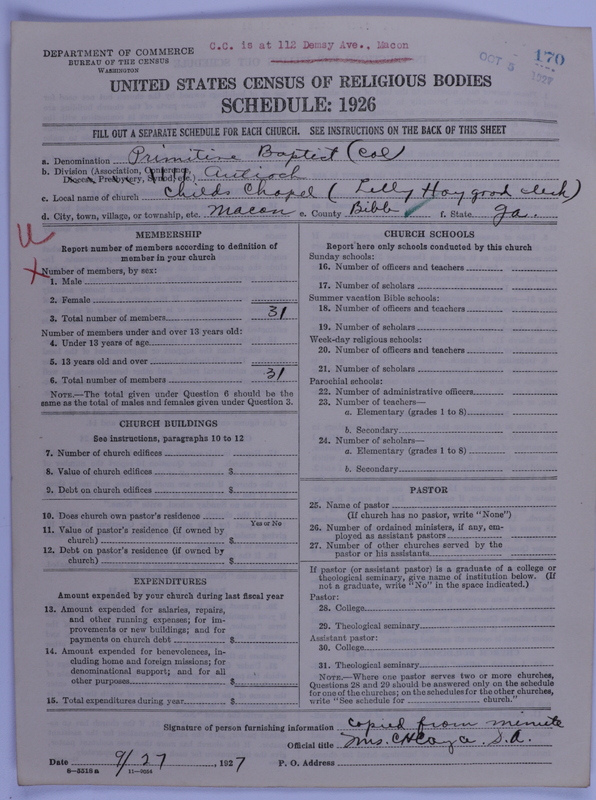 C.C. is at 112 Demsy Ave., Macon
DEPARTMENT OF COMMERCE
BUREAU OF THE CENSUS
WASHINGTON
OCT 5 1927
170
UNITED STATES CENSUS OF RELIGIOUS BODIES
SCHEDULE: 1926
FILL OUT A SEPARATE SCHEDULE FOR EACH CHURCH. SEE INSTRUCTIONS ON THE BACK OF THIS SHEET
a. Denomination Primitive Baptist (Col)
b. Division (Association, Conference, Diocese, Presbytery, Synod, etc.) Antioch
c. Local name of church Childs Chapel (Lilly Haygood clerk)
d. City, town, village, or township, etc. Macon e. County Bibb f. State Ga.
MEMBERSHIP
Report number of members according to definition of
member in your church
Number of members, by sex:
1. Male
2. Female
3. Total number of members 31
Number of members under and over 13 years old:
4. Under 13 years of age
5. 13 years old and over
6. Total number of members 31
NOTE.—The total given under Question 6 should be the
same as the total of males and females given under Question 3.
CHURCH BUILDINGS
See instructions, paragraphs 10 to 12
7. Number of church edifices
8. Value of church edifices $
9. Debt on church edifices $
10. Does church own pastor's residence
Yes or No
11. Value of pastor's residence (if owned by
church) $
12. Debt on pastor's residence (if owned by
church) $
EXPENDITURES
Amount expended by your church during last fiscal year
13. Amount expended for salaries, repairs,
and other running expenses; for im-
provements or new buildings; and for
payments on church debt $
14. Amount expended for benevolences, in-
cluding home and foreign missions; for
denominational support; and for all
other purposes $
15. Total expenditures during year $
CHURCH SCHOOLS
Report here only schools conducted by this church
Sunday schools:
16. Number of officers and teachers
17. Number of scholars
Summer vacation Bible schools:
18. Number of officers and teachers
19. Number of scholars
Week-day religious schools:
20. Number of officers and teachers
21. Number of scholars
Parochial schools:
22. Number of administrative officers
23. Number of teachers—
a. Elementary (grades 1 to 8)
b. Secondary
24. Number of scholars—
a. Elementary (grades 1 to 8)
b. Secondary
PASTOR
25. Name of pastor
(If church has no pastor, write "None")
26. Number of ordained ministers, if any, em-
ployed as assistant pastors
27. Number of other churches served by the
pastor or his assistants
If pastor (or assistant pastor) is a graduate of a college or
theological seminary, give name of institution below. (If
not a graduate, write "No" in the space indicated.)
Pastor:
28. College
29. Theological seminary
Assistant pastor:
30. College
31. Theological seminary
NOTE.—Where one pastor serves two or more churches,
Questions 28 and 29 should be answered only on the schedule
for one of the churches; on the schedules for the other churches,
write "See schedule for church."
Signature of person furnishing information copied from minute
Official title Mrs. S.A.
Date 9/27, 1927 P. O. Address
8-5516a 11-9024